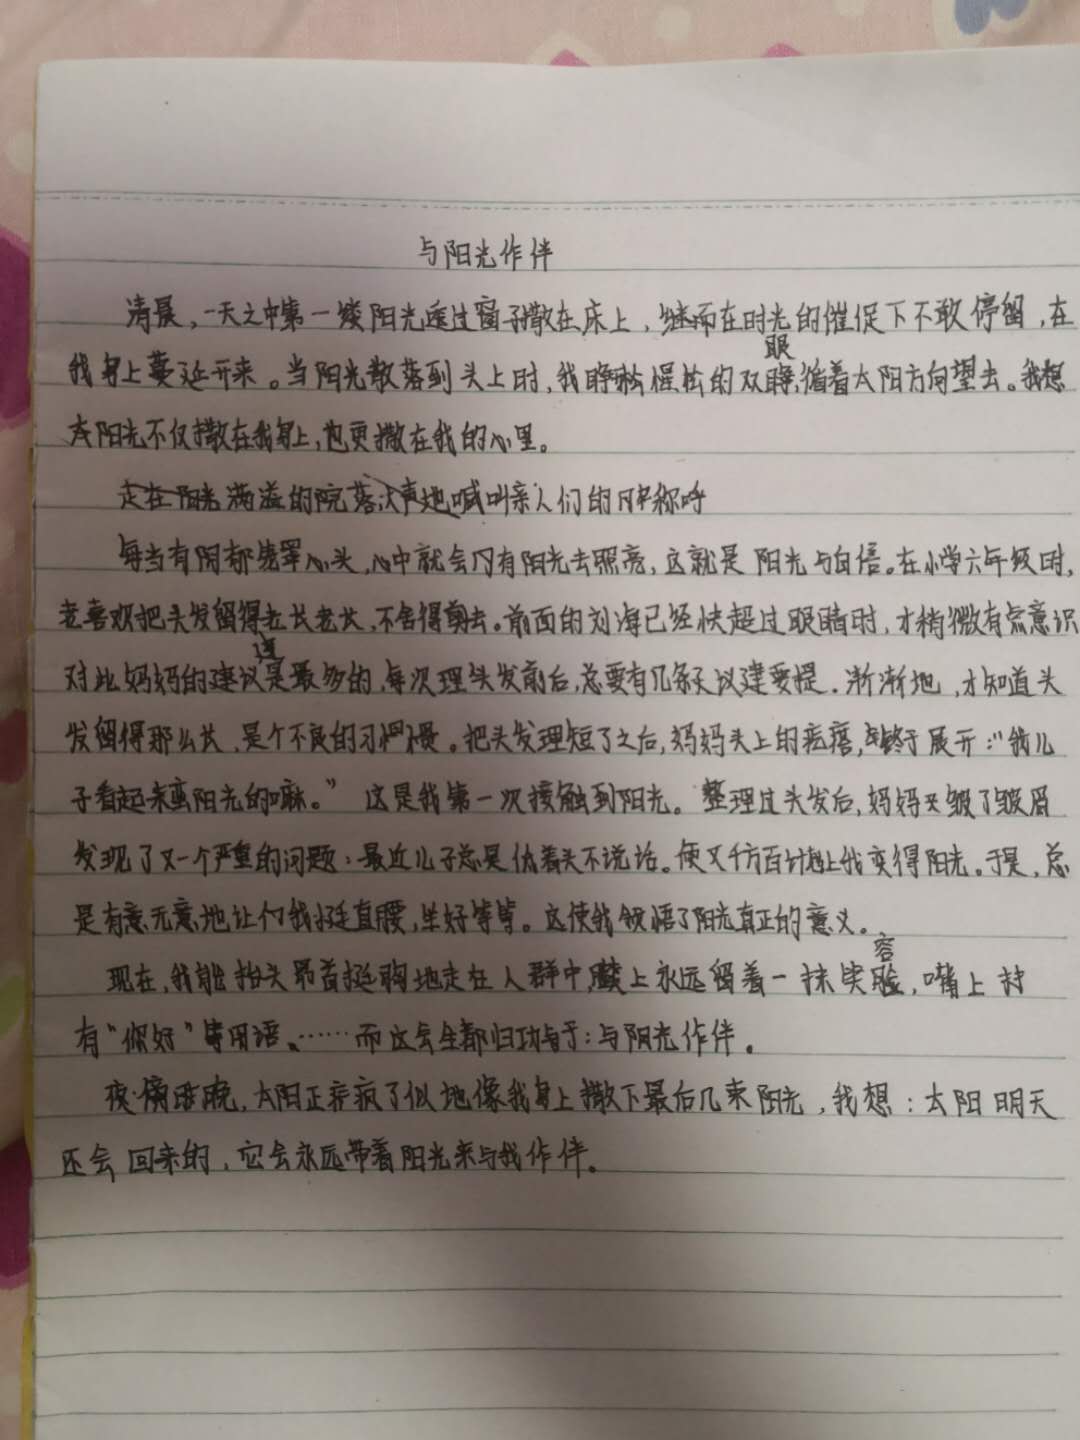 与阳光作伴
清晨，一天之中第一缕阳光透过窗子撒在床上，继而在时光的催促下不敢停留，在
眼
我身上蔓延开来。当阳光散落到头上时，我睁惺松的双睁，循着太阳方向望去。我想
阳光不仅撒在我身上，也更撒在我的心里。
走在阳光满溢的院落，大声地喊叫亲人们的称呼
每当有阴郁笼罩心头，心中就会有阳光去照亮，这就是阳光与自信。在小学六年级时，
老喜欢把头发留得老长老长，不舍得剪去。前面的刘海已经快超过眼睛时，才稍微有点意识
对此妈妈的建议是最多的，每次理头发前后，总要有几条建议要提。渐渐地，才知道头
发留得那么长，是个不良的习惯。把头发理短了之后，妈妈头上的疙瘩，终于展开：“我儿
子看起来蛮阳光的嘛。”这是我第一次接触到阳光。整理过头发后，妈妈又皱了皱眉
发现了又一个严重的问题：最近儿子总是低着头不说话。便又千方百计让我变得阳光。于是，总
是有意无意地让我挺直腰，坐好等等。这使我领悟了阳光真正的意义。
容
现在，我能抬头昂首挺胸地走在人群中，脸上永远留着一抹笑脸，嘴上挂
有“你好”等用语、……而这会全都归功于：与阳光作伴。
傍晚，太阳正弃疯了似地像我身上撒下最后几束阳光，我想：太阳明天
还会回来的，它会永远带着阳光来与我作伴。